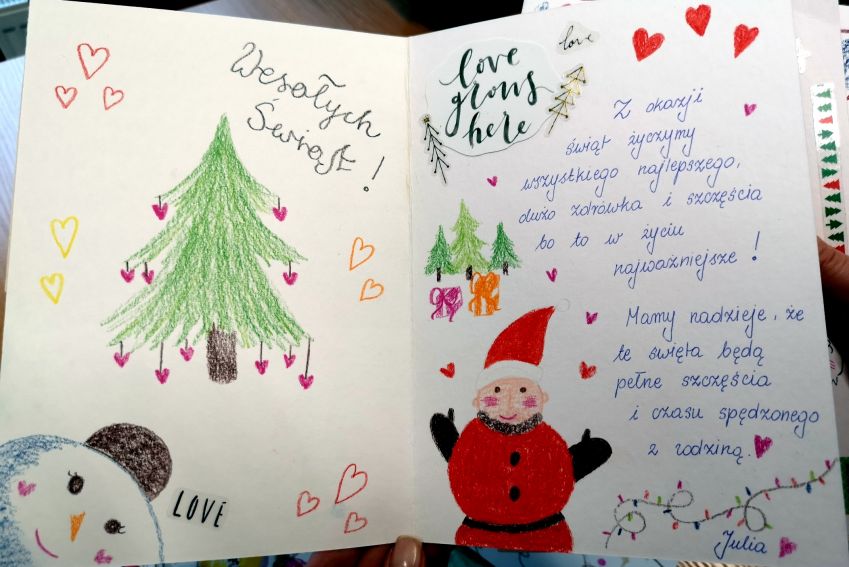 Wesołych
Świąt!
LOVE
love
grows
here
love
Z okazji
świąt życzymy
wszystkiego najlepszego,
dużo zdrówka i szczęścia
bo to w życiu
najważniejsze!
Mamy nadzieje, że
te święta będą
pełne szczęścia
i czasu spędzonego
z rodziną.
Julia